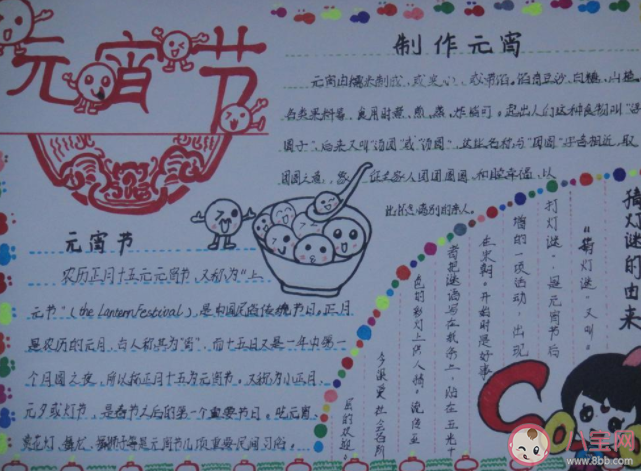 元宵节
制作元宵
元宵由糯米制成，或实心，或带馅。馅有豆沙、白糖、山楂、
各类果料等，食用时煮、煎、蒸、炸皆可。起初人们这种食物叫“浮
圆子”，后来又叫“汤团”或“汤圆”，这些名称与“团圆”字音相近，取
团圆之意，象征全家人团团圆圆，和睦幸福，以
此怀念离别的亲人
元宵节
农历正月十五元元宵节，又称为“上
元节”（the Lantern Festival），是中国民俗传统节日。正月
是农历的元月，古人称其为“宵”，而十五日又是一年中第一
个月圆之夜，所以称正月十五为元宵节。又称为小正月、
元夕或灯节，是春节之后的第一个重要节日。吃元宵、
赏花灯、舞龙、舞狮子等是元宵节几项重要民间习俗。
猜灯谜的由来
“猜灯谜”又叫“
打灯谜”，是元宵节后
增的一项活动，出现
在宋朝。开始时是好事
者把谜语写在纸条上，贴在五光十
色的彩灯上供人猜。
多深受社会各阶
层的欢迎。
Co
八宝网
www.8bb.com